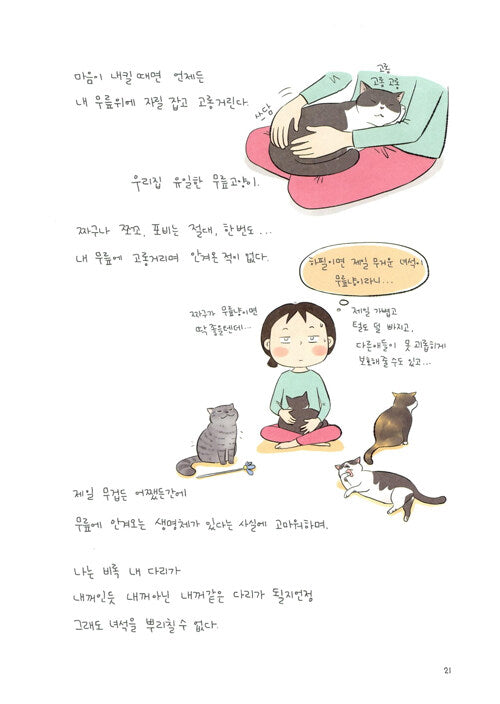 마음이 내킬 때면 언제든
내 무릎위에 자릴 잡고 고롱거린다.
고롱
고롱 고롱
쓰담
우리집 유일한 무릎고양이.
짜구나 쪼꼬, 포비는 절대, 한번도...
내 무릎에 고롱거리며 안겨온 적이 없다.
하필이면 제일 무거운 녀석이
무릎냥이라니...
짜구가 무릎냥이면
딱 좋을텐데...
제일 가볍고
털도 덜 빠지고,
다른애들이 못 괴롭히게
보호해 줄 수도 있고...
제일 무겁든 어쨌든간에
무릎에 안겨오는 생명체가 있다는 사실에 고마워하며,
나는 비록 내 다리가
내꺼인듯 내꺼아닌 내꺼같은 다리가 될지언정
그래도 녀석을 뿌리칠 수 없다.
21